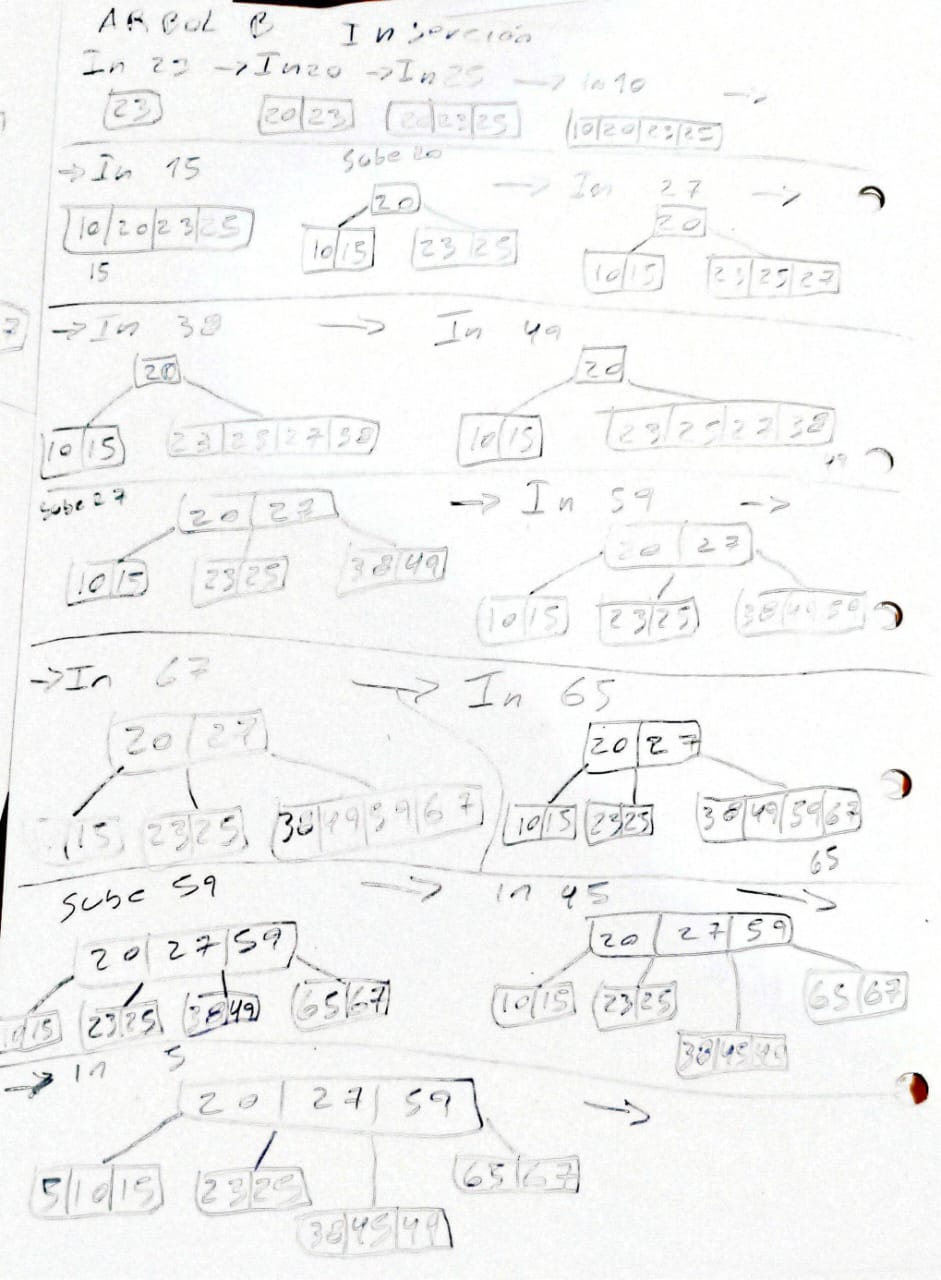 ARBOL B Inserción
In 23 → In 20 → In 25 → In 10 →
23 20|23 20|23|25 10|20|23|25
→ In 15 Sube 20 → In 27 →
20 20
10|20|23|25 10|15 23|25 10|15 23|25|27
15
→ In 38 → In 49
20 20
10|15 23|25|27|38 10|15 23|25|27|38
49
Sube 27 → In 59 →
20|27 20|27
10|15 23|25 38|49 10|15 23|25 38|49|59
→ In 67 → In 65
20|27 20|27
15 23|25 38|49|59|67 10|15 23|25 38|49|59|67
65
Sube 59 → In 45 →
20|27|59 20|27|59
10|15 23|25 38|49 65|67 10|15 23|25 65|67
38|45|49
→ In 5
20|27|59 →
5|10|15 23|25 65|67
38|45|49